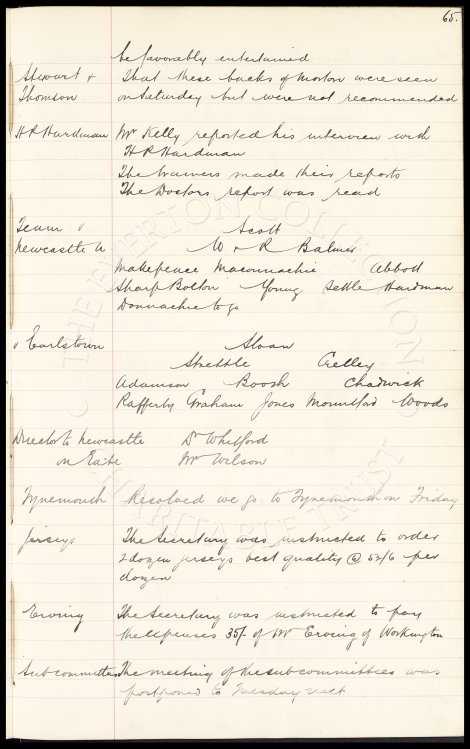 65.
be favorably entertained
Stewart & That these backs of Morton were seen
Thomson on Saturday but were not recommended
H P Hardman Mr Kelly reported his interview with
H P Hardman
The trainers made their reports
The Doctors report was read
Team v Scott
Newcastle U W & R Balmer
Makepeace Maconnachie Abbott
Sharp Bolton Young Settle Hardman
Donnachie to go
v Earlstown Sloan
Strettle Crelley
Adamson Booth Chadwick
Rafferty Graham Jones Mountford Woods
Director to Newcastle Dr Whitford
Mr Wilson
Tynemouth Resolved we go to Tynemouth on Friday
Jerseys The Secretary was instructed to order
2 dozen jerseys best quality @ 52/6 per
dozen
Erving The Secretary was instructed to pay
the expenses 35/- of Mr Erving of Workington
Subcommittees The meeting of the subcommittees was
postponed to Tuesday next
THE EVERTON COLLECTION
CHARITABLE TRUST